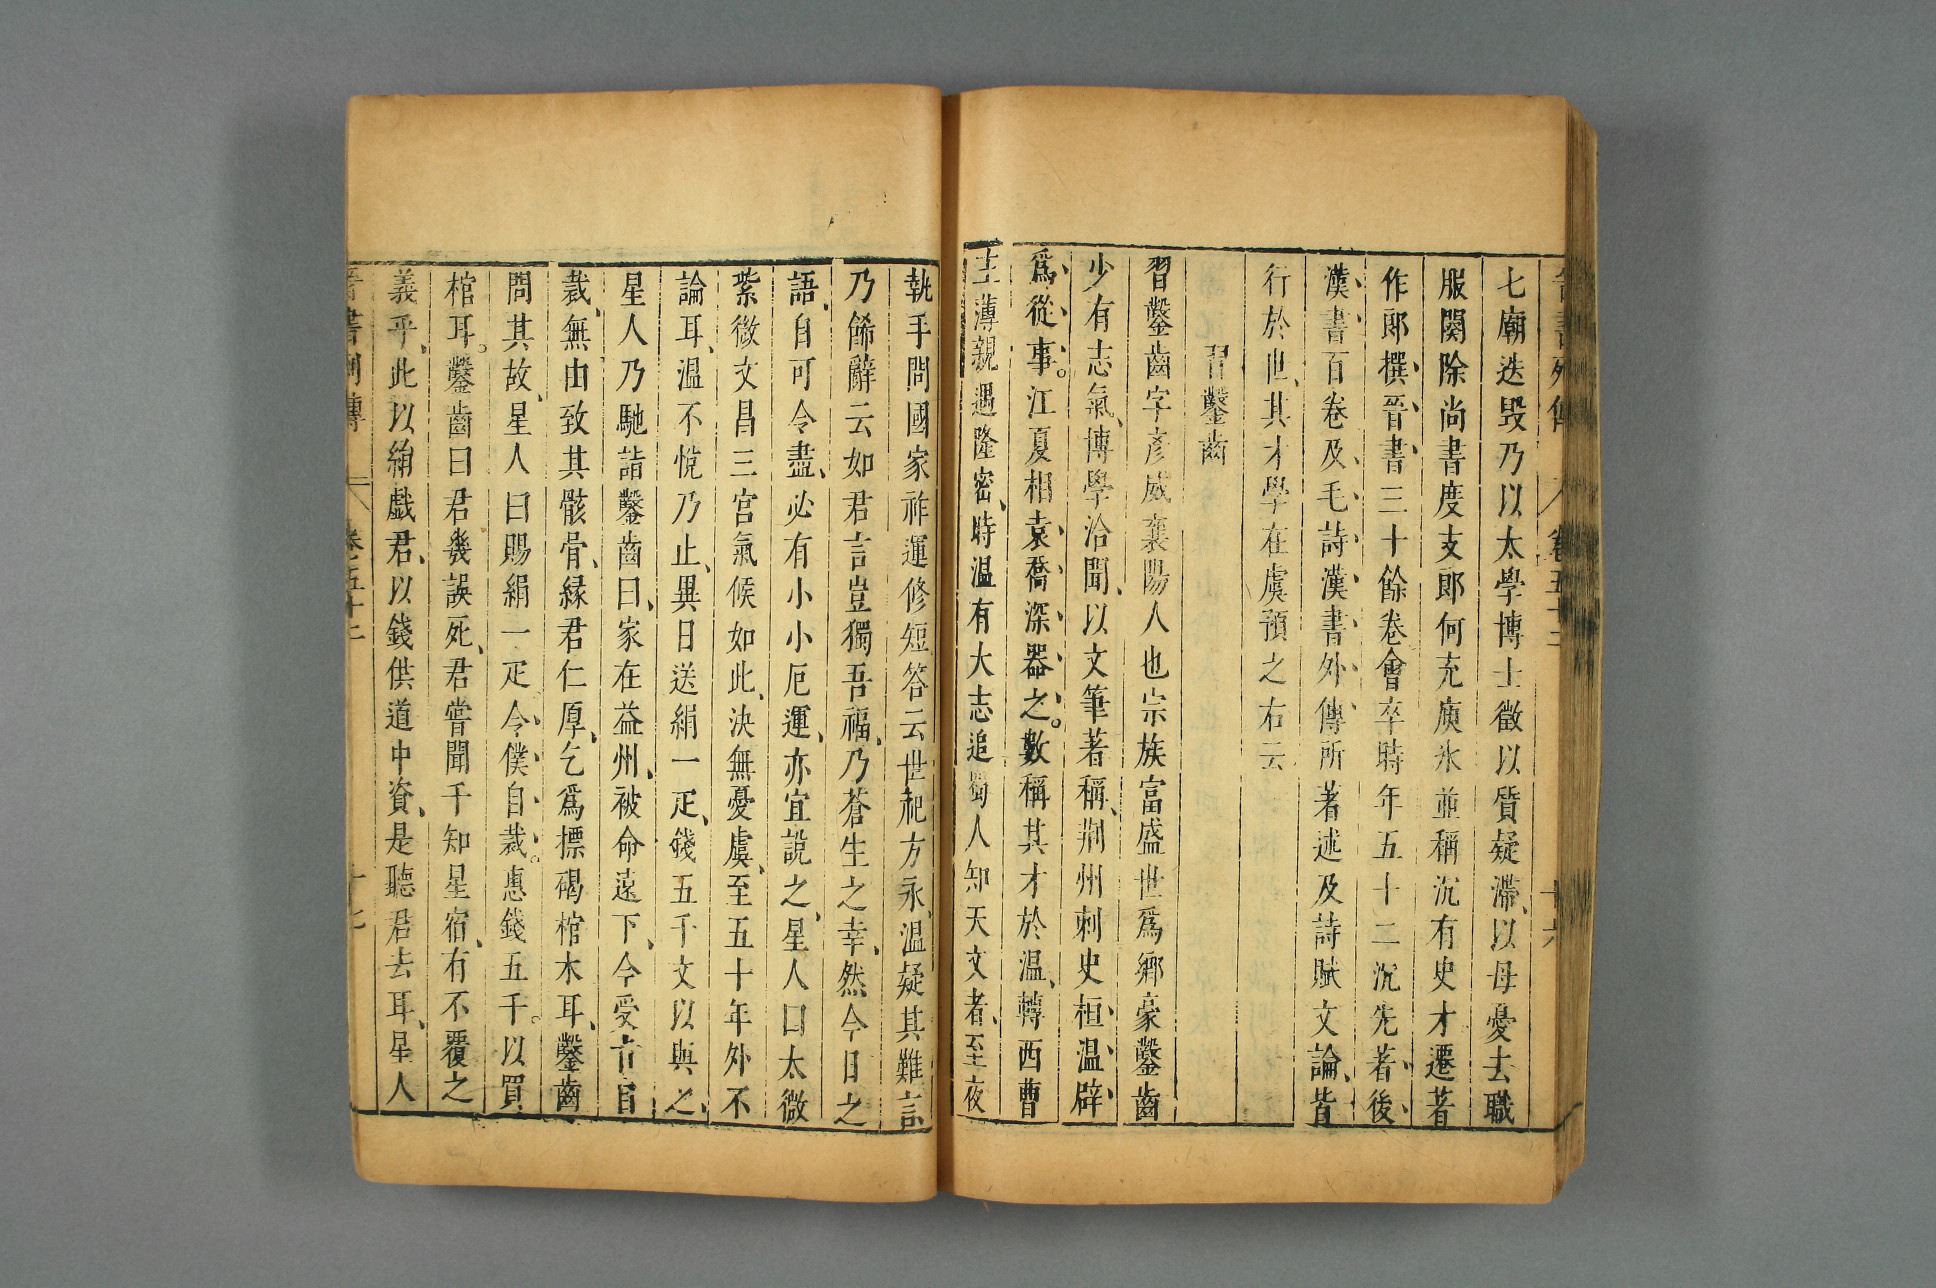 晉書列傳 卷五十二 十六
七廟迭毀乃以太學博士徵以質疑滯以母憂去職
服闋除尚書度支郎何充庾氷並稱沉有史才遷著
作郎撰晉書三十餘卷會卒時年五十二沉先著後
漢書百卷及毛詩漢書外傳所著述及詩賦文論皆
行於世其才學在虞預之右云
習鑿齒
習鑿齒字彥威襄陽人也宗族富盛世爲鄉豪鑿齒
少有志氣博學洽聞以文筆著稱荆州刺史桓温辟
爲從事。江夏相袁喬深器之。數稱其才於温轉西曹
主薄親遇隆密時温有大志追蜀人知天文者至夜
執手問國家祚運修短答云世祀方永温疑其難言
乃飾辭云如君言豈獨吾福乃蒼生之幸然今日之
語自可令盡必有小小厄運亦宜說之星人曰太微
紫微文昌三宮氣候如此決無憂虞至五十年外不
論耳温不悅乃止異日送絹一疋錢五千文以與之
星人乃馳詣鑿齒曰家在益州被命遠下今受旨自
裁無由致其骸骨緣君仁厚乞爲標碣棺木耳鑿齒
問其故星人曰賜絹一疋令僕自裁。惠錢五千。以買
棺耳。鑿齒曰君幾誤死君嘗聞千知星宿有不覆之
義乎此以絹戲君以錢供道中資是聽君去耳星人
晉書列傳 卷五十二 十七